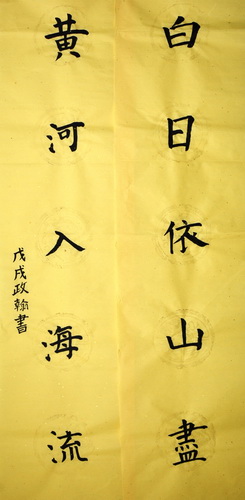 白日依山盡
黃河入海流
戊戌政翰書